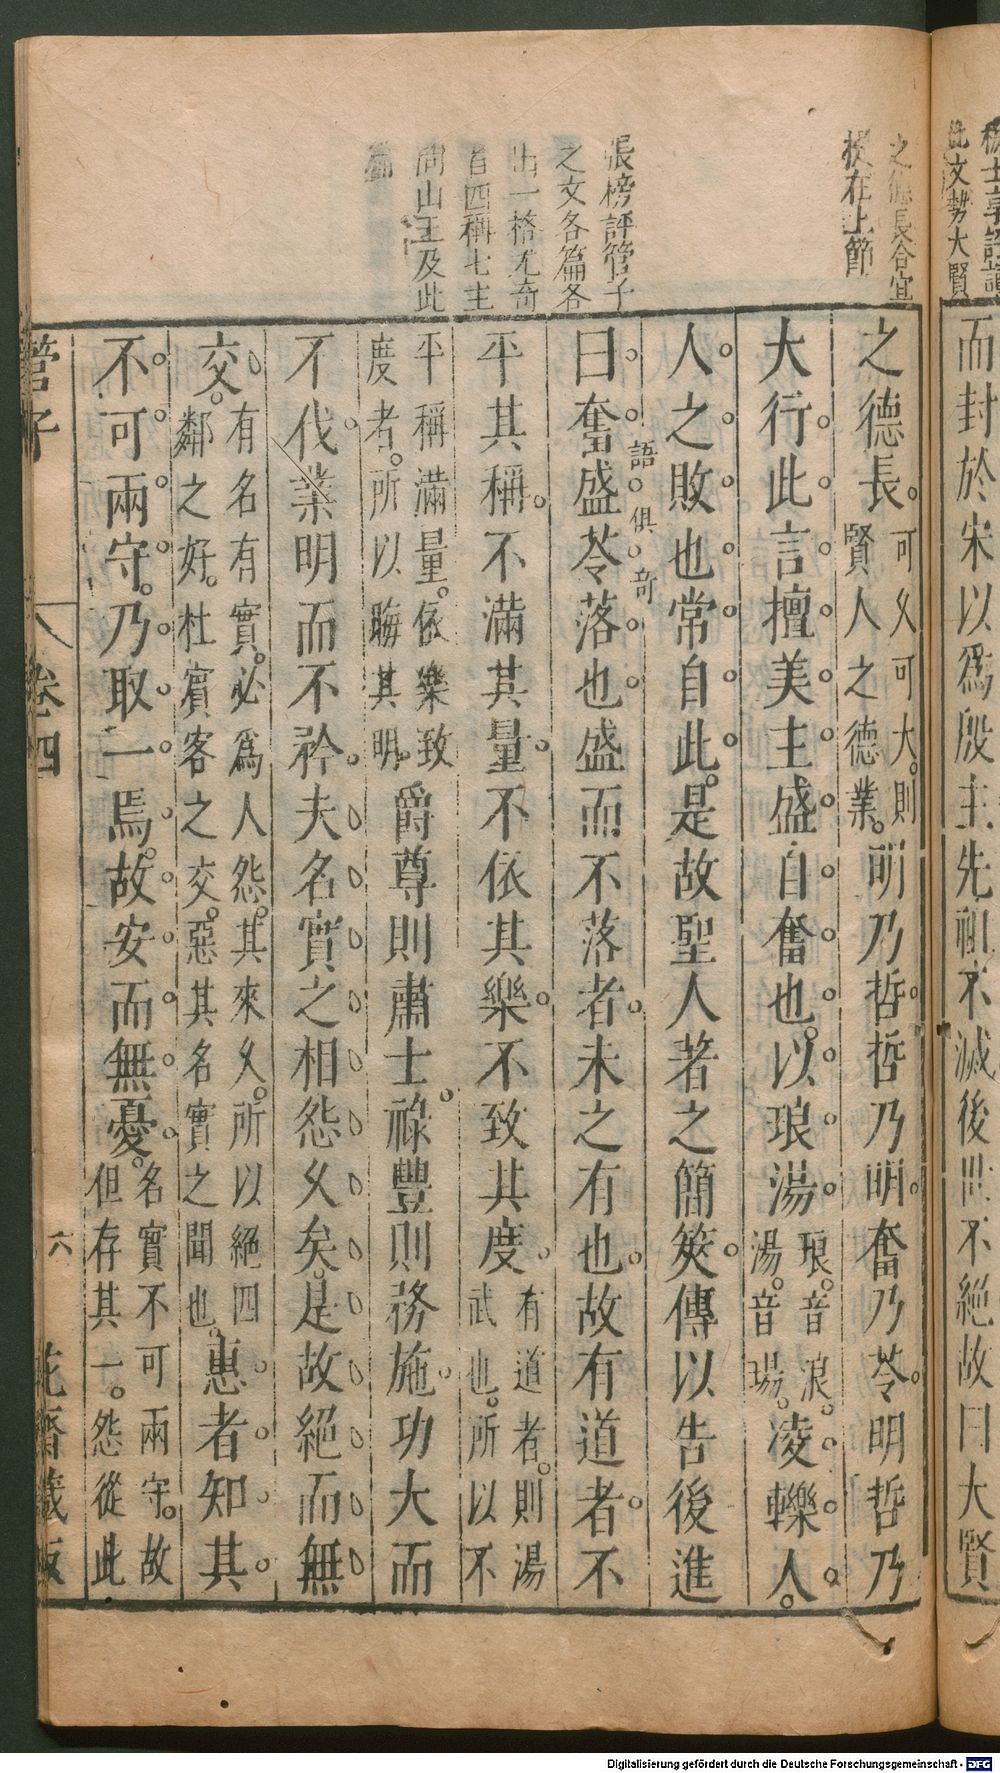 此文勢大賢
而封於宋以爲殷主先祖不滅後世不絕故曰大賢
之德長合宜
校在上節
張榜評管子
之文各篇各
出一格尤奇
者四稱七主
問山王及此
篇
之德長。可久可大。則賢人之德業。明乃哲哲乃明奮乃苓明哲乃
大行此言擅美主盛自奮也。以琅湯琅。音浪。湯。音場。凌轢人。
人之敗也常自此。是故聖人著之簡筴傳以告後進
語俱奇
曰奮盛苓落也盛而不落者未之有也故有道者不
平其稱不滿其量不依其樂不致其度有道者。則湯武也。所以不
平稱滿量。依樂致度者。所以晦其明。爵尊則肅士祿豐則務施功大而
不伐業明而不矜夫名實之相怨久矣。是故絕而無
交。有名有實。必爲人怨。其來久。所以絕四鄰之好。杜賓客之交。惡其名實之聞也。惠者知其
不可兩守。乃取一焉。故安而無憂。名實不可兩守。故但存其一。怨從此
管子 卷四 六 花齋藏板
Digitalisierung gefördert durch die Deutsche Forschungsgemeinschaft - DFG